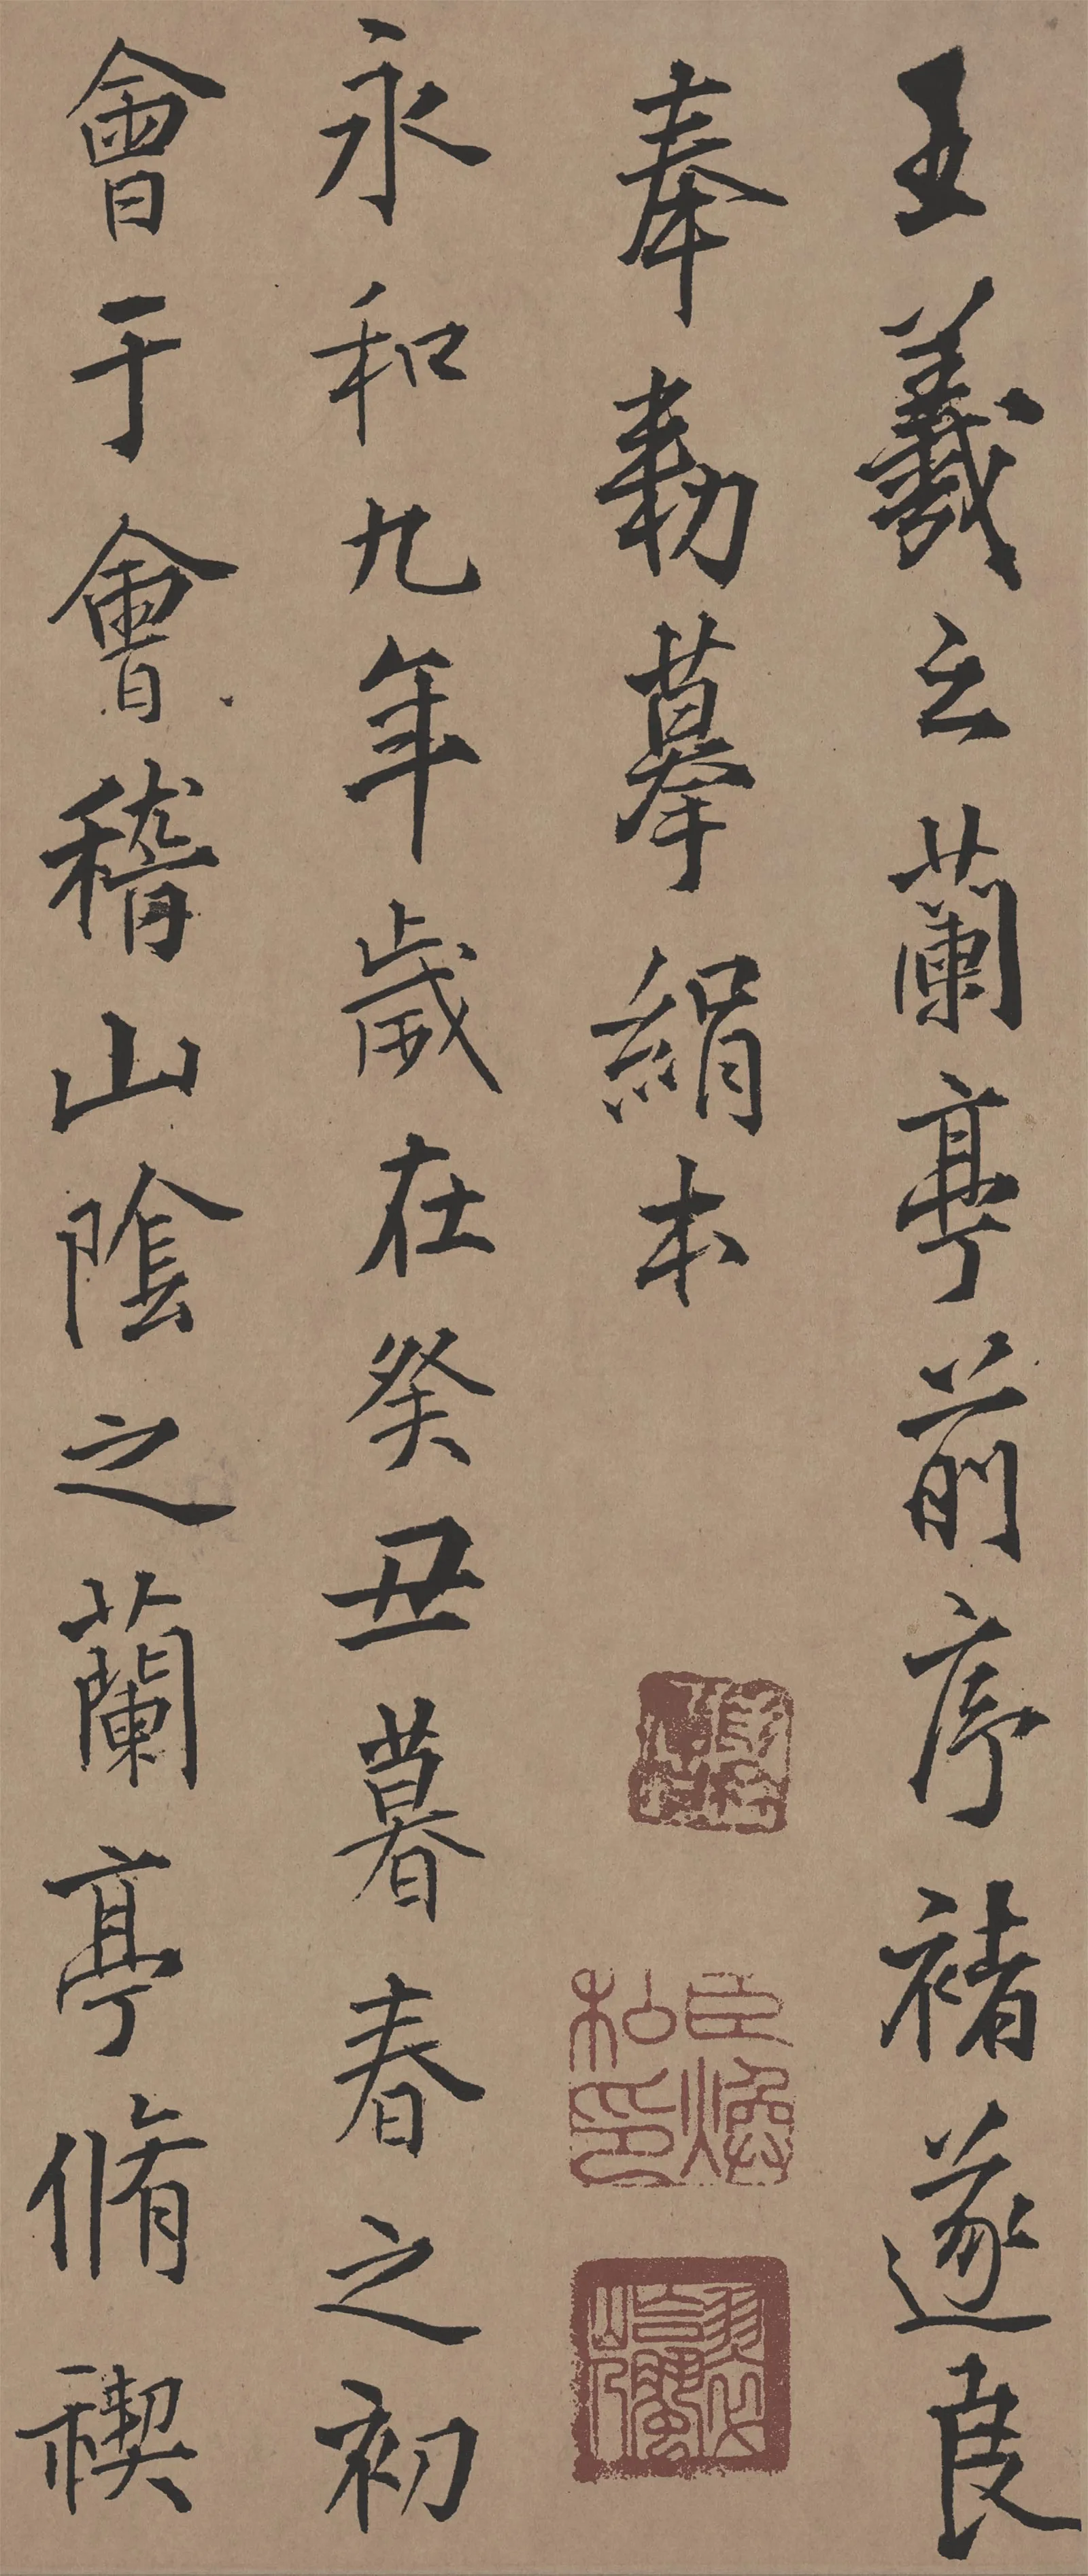 王羲之蘭亭前序褚遂良
奉勑摹絹本
永和九年歲在癸丑暮春之初
會于會稽山陰之蘭亭脩禊
臣煥私印